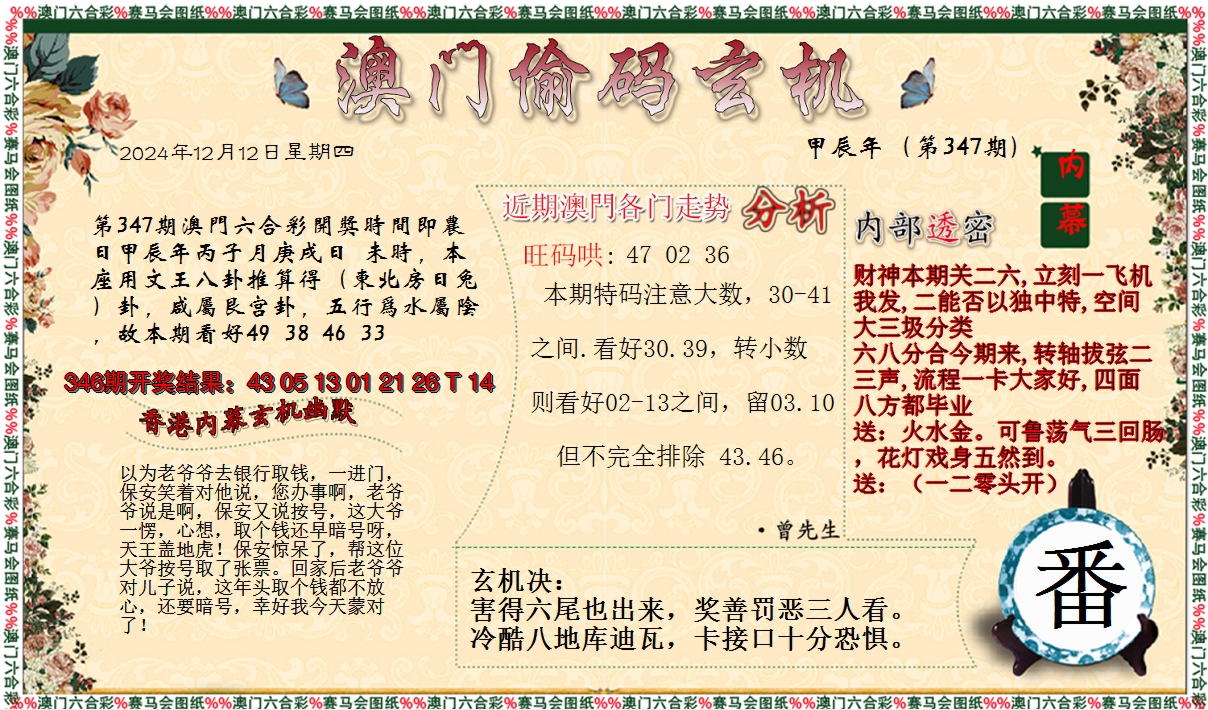 %%澳门六合彩%赛马会图纸%%澳门六合彩%赛马会图纸%%澳门六合彩%赛马会图纸%%澳门六合彩%赛马会图纸%%澳门六合彩%赛马会图纸%%澳门六合彩%赛马会图纸%%
澳门偷码玄机
2024年12月12日星期四
甲辰年（第347期）
内
幕
第347期澳門六合彩開獎時間即農
日甲辰年丙子月庚戌日 未時，本
座用文王八卦推算得（東北房日兔
）卦，咸屬艮宫卦，五行爲水屬陰
，故本期看好49 38 46 33
346期开奖结果：43 05 13 01 21 26 T 14
香港内幕玄机幽默
以为老爷爷去银行取钱，一进门，
保安笑着对他说，您办事啊，老爷
爷说是啊，保安又说按号，这大爷
一愣，心想，取个钱还早暗号呀，
天王盖地虎！保安惊呆了，帮这位
大爷按号取了张票。回家后老爷爷
对儿子说，这年头取个钱都不放
心，还要暗号，幸好我今天蒙对
了！
近期澳門各门走势 分析
旺码哄: 47 02 36
本期特码注意大数，30-41
之间.看好30.39，转小数
则看好02-13之间，留03.10
但不完全排除 43.46。
·曾先生
内部透密
财神本期关二六,立刻一飞机
我发,二能否以独中特,空间
大三圾分类
六八分合今期来,转轴拔弦二
三声,流程一卡大家好,四面
八方都毕业
送：火水金。可鲁荡气三回肠
，花灯戏身五然到。
送：（一二零头开）
玄机决：
害得六尾也出来，奖善罚恶三人看。
冷酷八地库迪瓦，卡接口十分恐惧。
番
%%澳门六合彩%赛马会图纸%%澳门六合彩%赛马会图纸%%澳门六合彩%赛马会图纸%%澳门六合彩%赛马会图纸%%澳门六合彩%赛马会图纸%%澳门六合彩%赛马会图纸%%